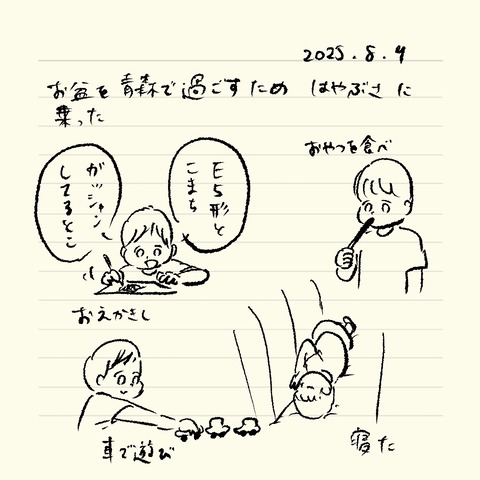 2025.8.9
お盆を青森で過ごすため はやぶさに
乗った
おやつを食べ
E5形と
こまち
がッシャン
してるとこ
おえかきし
車で遊び
寝た